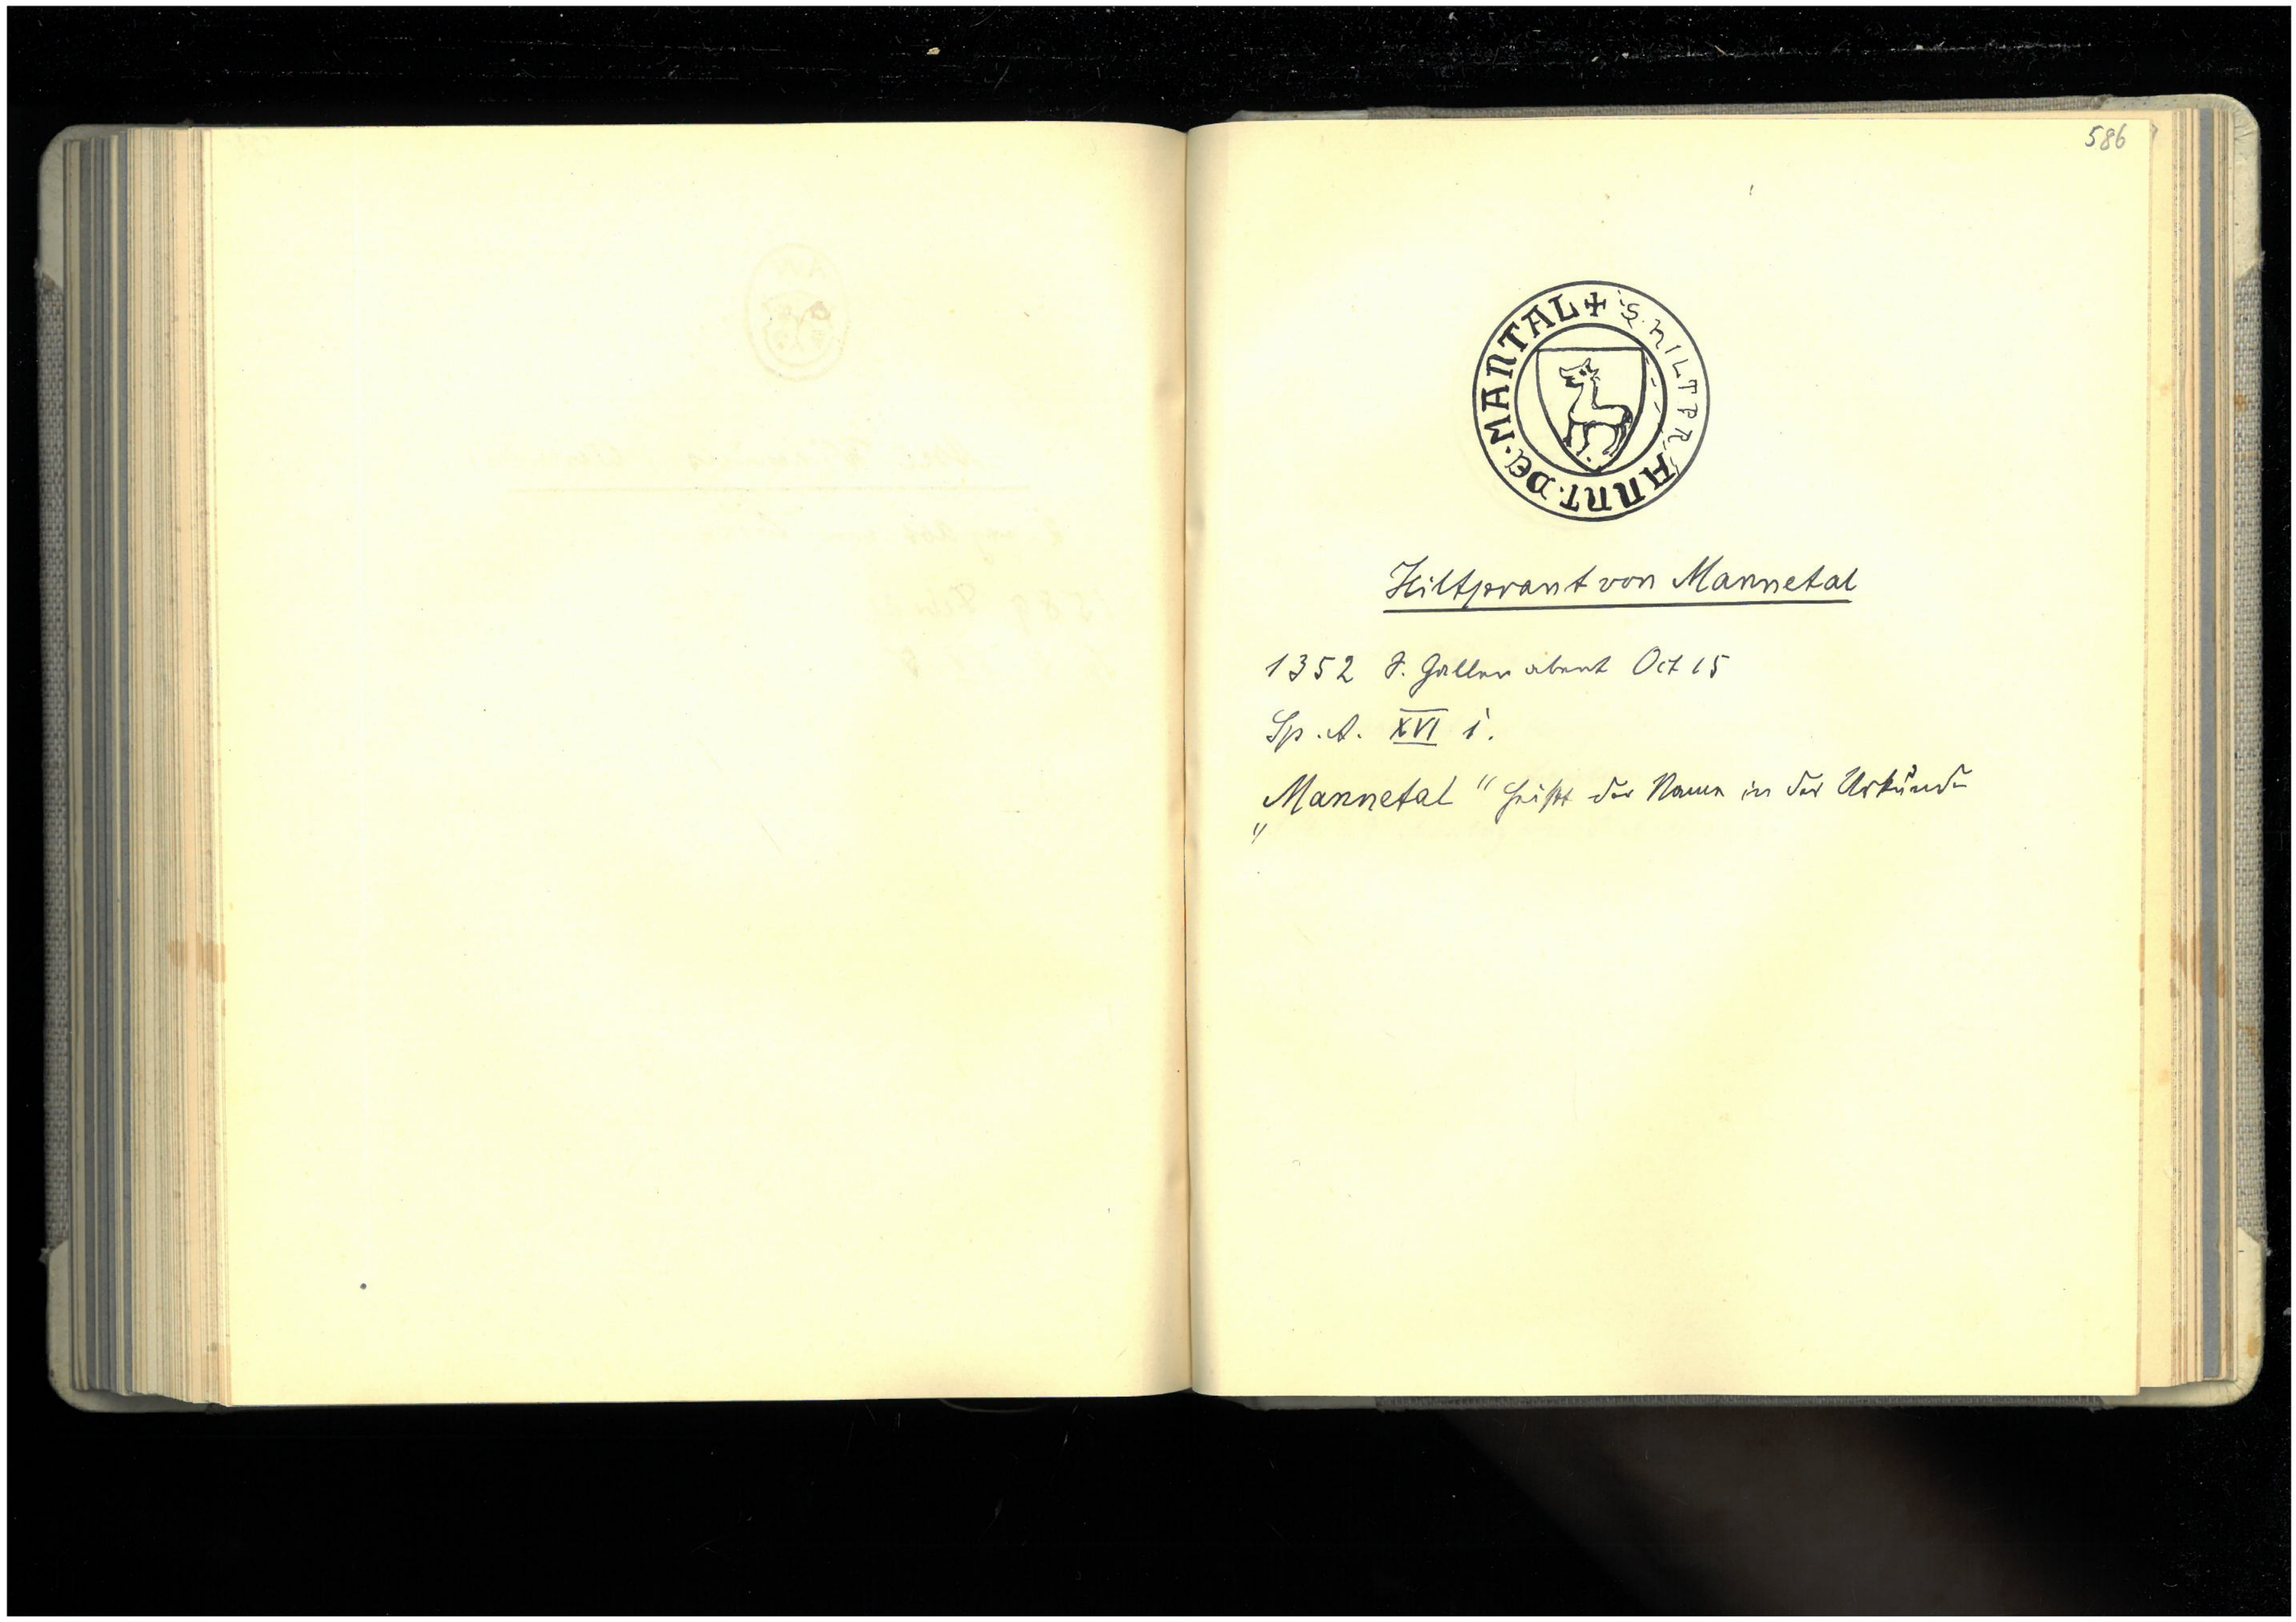 586
+ S. HILTPRANNT. DE. MANTAL
Hiltprant von Mannetal
1352 S. Gallen abent Oct 15
Sp. A. XVI i.
„Mannetal" heißt der Name in der Urkunde